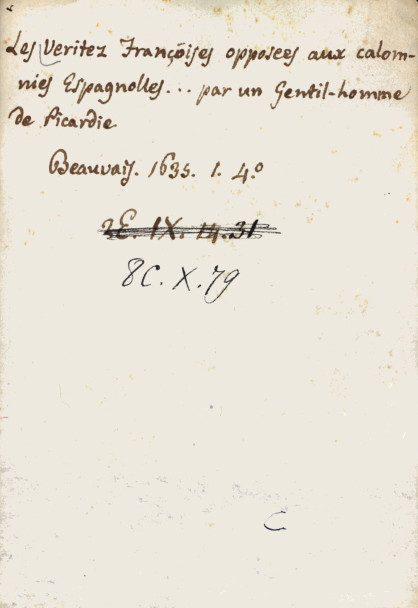 Les Veritez Françoises opposees aux calom-
nies Espagnolles... par un Gentil-homme
de Picardie
Beauvais. 1635. 1. 4.o
2E. IX. 14.31
8C. X. 79
C